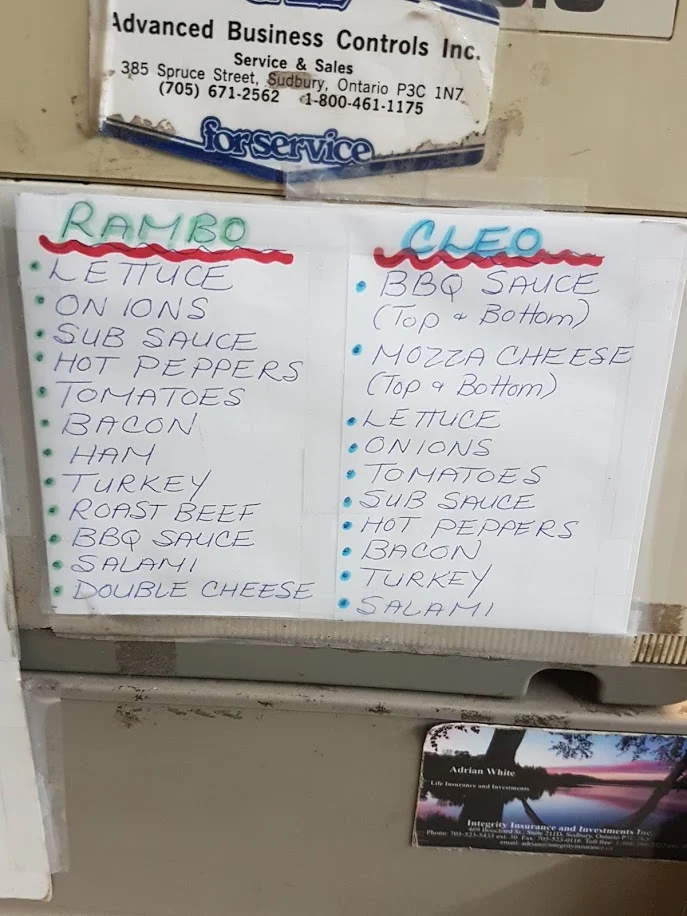 Advanced Business Controls Inc.
Service & Sales
385 Spruce Street, Sudbury, Ontario P3C 1N7
(705) 671-2562 1-800-461-1175
for service
RAMBO
• LETTUCE
• ONIONS
• SUB SAUCE
• HOT PEPPERS
• TOMATOES
• BACON
• HAM
• TURKEY
• ROAST BEEF
• BBQ SAUCE
• SALAMI
• DOUBLE CHEESE
CLEO
• BBQ SAUCE
(Top & Bottom)
• MOZZA CHEESE
(Top & Bottom)
• LETTUCE
• ONIONS
• TOMATOES
• SUB SAUCE
• HOT PEPPERS
• BACON
• TURKEY
• SALAMI
Adrian White
Life Insurance and Investments
Integrity Insurance and Investments Inc.
Suite 211D, Sudbury, Ontario
Phone: 705-523-5433 ext. 30 Fax: 705-523-0116 Toll free:
email: